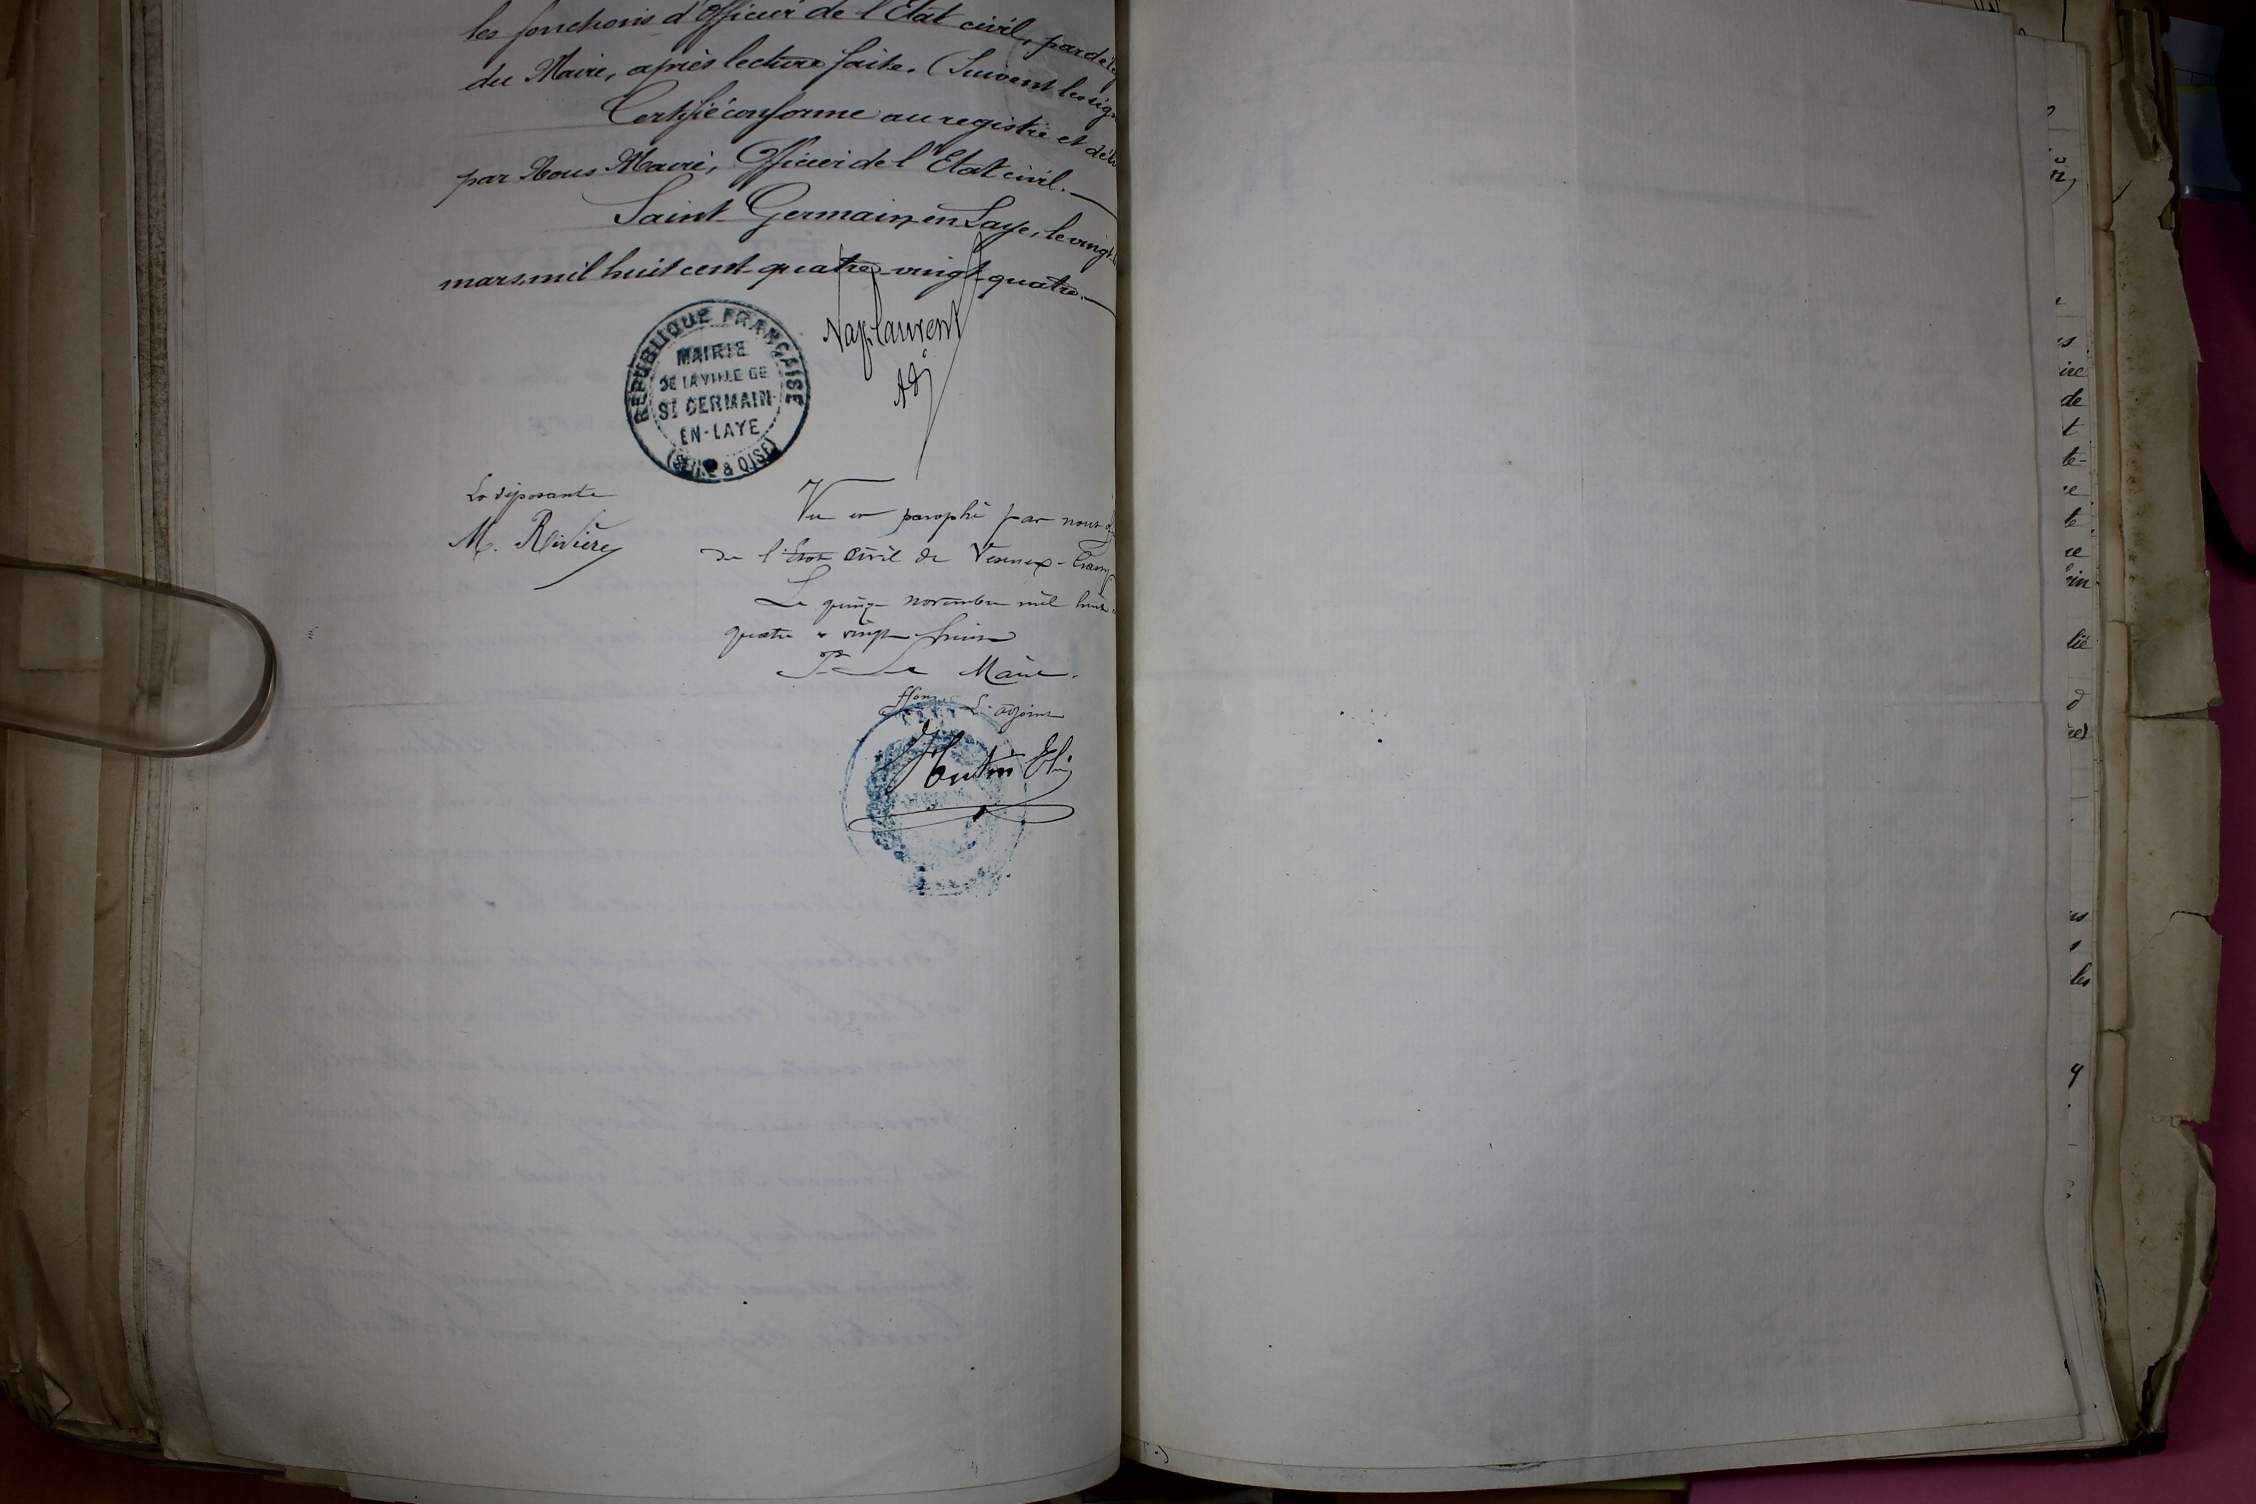 les fonctions d'Officier de l'Etat civil, par délég
du Maire, après lecture faite. (Suivent les sign
Certifié conforme au registre et déli
par Nous Maire, Officier de l'Etat civil.
Saint-Germain en Laye, le vingt
mars mil huit cent quatre-vingt-quatre.
RÉPUBLIQUE FRANÇAISE
MAIRIE
DE LA VILLE DE
ST GERMAIN-
EN-LAYE
(SEINE & OISE)
Nap Laurent
Adj
La déposante
M. Rivière
Vu et paraphé par nous
de l'Etat civil de
Le quinze novembre mil huit
quatre vingt
Le Maire.
L'adjoint
ire
de
t
te-
ce
te
ce
lié
les